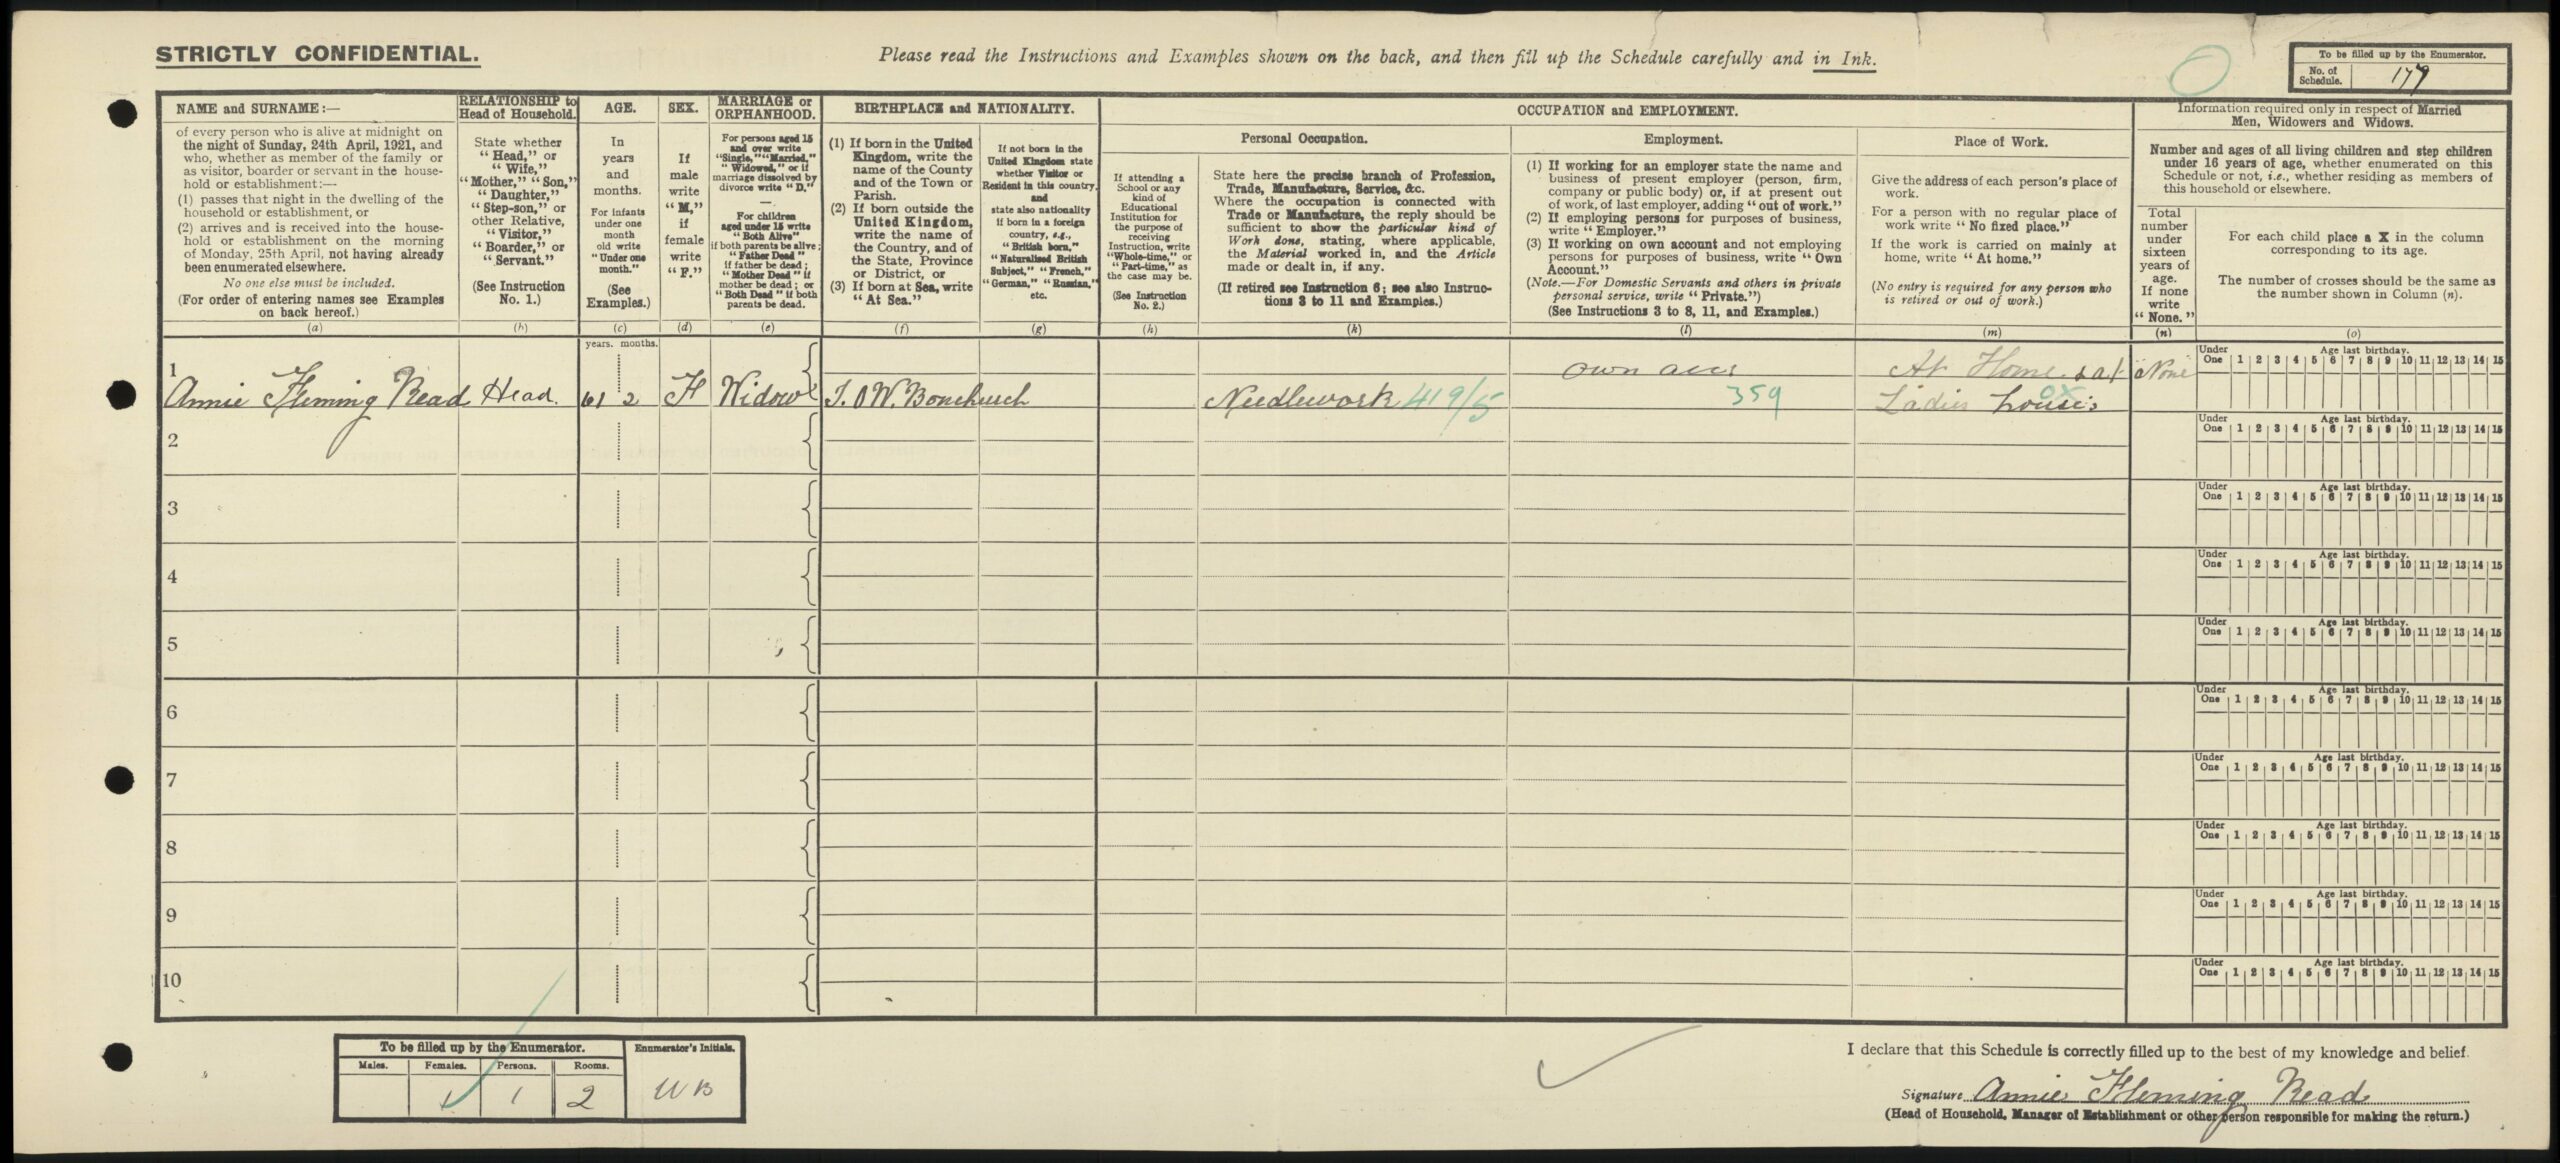 STRICTLY CONFIDENTIAL.
Please read the Instructions and Examples shown on the back, and then fill up the Schedule carefully and in Ink.
To be filled up by the Enumerator.
No. of Schedule. 177
NAME and SURNAME:—
of every person who is alive at midnight on
the night of Sunday, 24th April, 1921, and
who, whether as member of the family or
as visitor, boarder or servant in the house-
hold or establishment:—
(1) passes that night in the dwelling of the
household or establishment, or
(2) arrives and is received into the house-
hold or establishment on the morning
of Monday, 25th April, not having already
been enumerated elsewhere.
No one else must be included.
(For order of entering names see Examples
on back hereof.)
(a)
RELATIONSHIP to
Head of Household.
State whether
"Head," or
"Wife,"
"Mother," "Son,"
"Daughter,"
"Step-son," or
other Relative,
"Visitor,"
"Boarder," or
"Servant."
(See Instruction
No. 1.)
(b)
AGE.
In
years
and
months.
For infants
under one
month
old write
"Under one
month."
(See
Examples.)
(c)
SEX.
If
male
write
"M,"
if
female
write
"F."
(d)
MARRIAGE or
ORPHANHOOD.
For persons aged 15
and over write
"Single," "Married,"
"Widowed," or if
marriage dissolved by
divorce write "D."
—
For children
aged under 15 write
"Both Alive"
if both parents be alive;
"Father Dead"
if father be dead;
"Mother Dead" if
mother be dead; or
"Both Dead" if both
parents be dead.
(e)
BIRTHPLACE and NATIONALITY.
(1) If born in the United
Kingdom, write the
name of the County
and of the Town or
Parish.
(2) If born outside the
United Kingdom,
write the name of
the Country, and of
the State, Province
or District, or
(3) If born at Sea, write
"At Sea."
(f)
If not born in the
United Kingdom state
whether Visitor or
Resident in this country,
and
state also nationality
if born in a foreign
country, e.g.,
"British born,"
"Naturalised British
Subject," "French,"
"German," "Russian,"
etc.
(g)
OCCUPATION and EMPLOYMENT.
If attending a
School or any
kind of
Educational
Institution for
the purpose of
receiving
Instruction, write
"Whole-time," or
"Part-time," as
the case may be.
(See Instruction
No. 2.)
(h)
Personal Occupation.
State here the precise branch of Profession,
Trade, Manufacture, Service, &c.
Where the occupation is connected with
Trade or Manufacture, the reply should be
sufficient to show the particular kind of
Work done, stating, where applicable,
the Material worked in, and the Article
made or dealt in, if any.
(If retired see Instruction 6; see also Instruc-
tions 3 to 11 and Examples.)
(k)
Employment.
(1) If working for an employer state the name and
business of present employer (person, firm,
company or public body) or, if at present out
of work, of last employer, adding "out of work."
(2) If employing persons for purposes of business,
write "Employer."
(3) If working on own account and not employing
persons for purposes of business, write "Own
Account."
(Note.—For Domestic Servants and others in private
personal service, write "Private.")
(See Instructions 3 to 8, 11, and Examples.)
(l)
Place of Work.
Give the address of each person's place of
work.
For a person with no regular place of
work write "No fixed place."
If the work is carried on mainly at
home, write "At home."
(No entry is required for any person who
is retired or out of work.)
(m)
Information required only in respect of Married
Men, Widowers and Widows.
Number and ages of all living children and step children
under 16 years of age, whether enumerated on this
Schedule or not, i.e., whether residing as members of
this household or elsewhere.
Total
number
under
sixteen
years of
age.
If none
write
"None."
(n)
For each child place a X in the column
corresponding to its age.
The number of crosses should be the same as
the number shown in Column (n).
(o)
years. months.
Under One Age last birthday.
1 2 3 4 5 6 7 8 9 10 11 12 13 14 15
1
Annie Fleming Read Head. 61 2 F Widow I. O W. Bonchurch Needlework 419/5
own acc
359
At Home & at
Ladies houses
OX
"None"
2
Under One Age last birthday.
1 2 3 4 5 6 7 8 9 10 11 12 13 14 15
3
Under One Age last birthday.
1 2 3 4 5 6 7 8 9 10 11 12 13 14 15
4
Under One Age last birthday.
1 2 3 4 5 6 7 8 9 10 11 12 13 14 15
5
Under One Age last birthday.
1 2 3 4 5 6 7 8 9 10 11 12 13 14 15
6
Under One Age last birthday.
1 2 3 4 5 6 7 8 9 10 11 12 13 14 15
7
Under One Age last birthday.
1 2 3 4 5 6 7 8 9 10 11 12 13 14 15
8
Under One Age last birthday.
1 2 3 4 5 6 7 8 9 10 11 12 13 14 15
9
Under One Age last birthday.
1 2 3 4 5 6 7 8 9 10 11 12 13 14 15
10
Under One Age last birthday.
1 2 3 4 5 6 7 8 9 10 11 12 13 14 15
To be filled up by the Enumerator.
Males. Females. Persons. Rooms.
1 1 2
Enumerator's Initials.
WB
I declare that this Schedule is correctly filled up to the best of my knowledge and belief.
Signature Annie Fleming Read
(Head of Household, Manager of Establishment or other person responsible for making the return.)